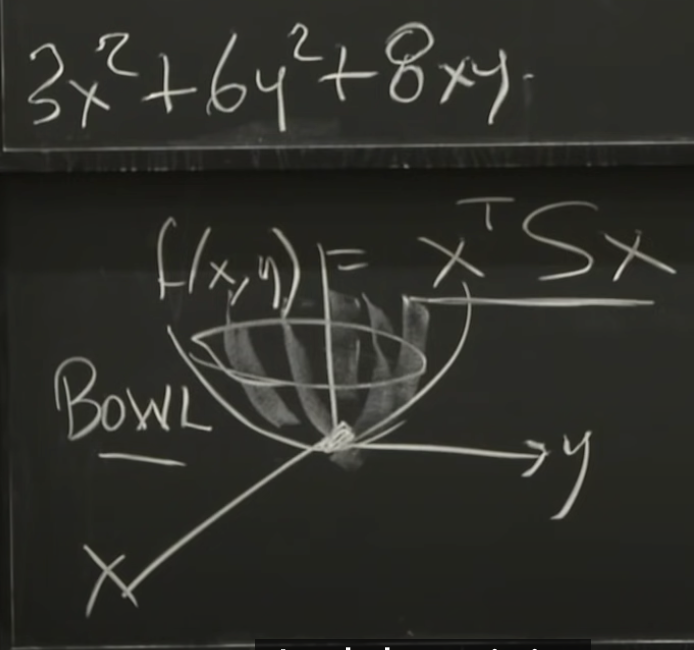 3x²+6y²+8xy
f(x,y) = xᵀSx
BOWL
y
x